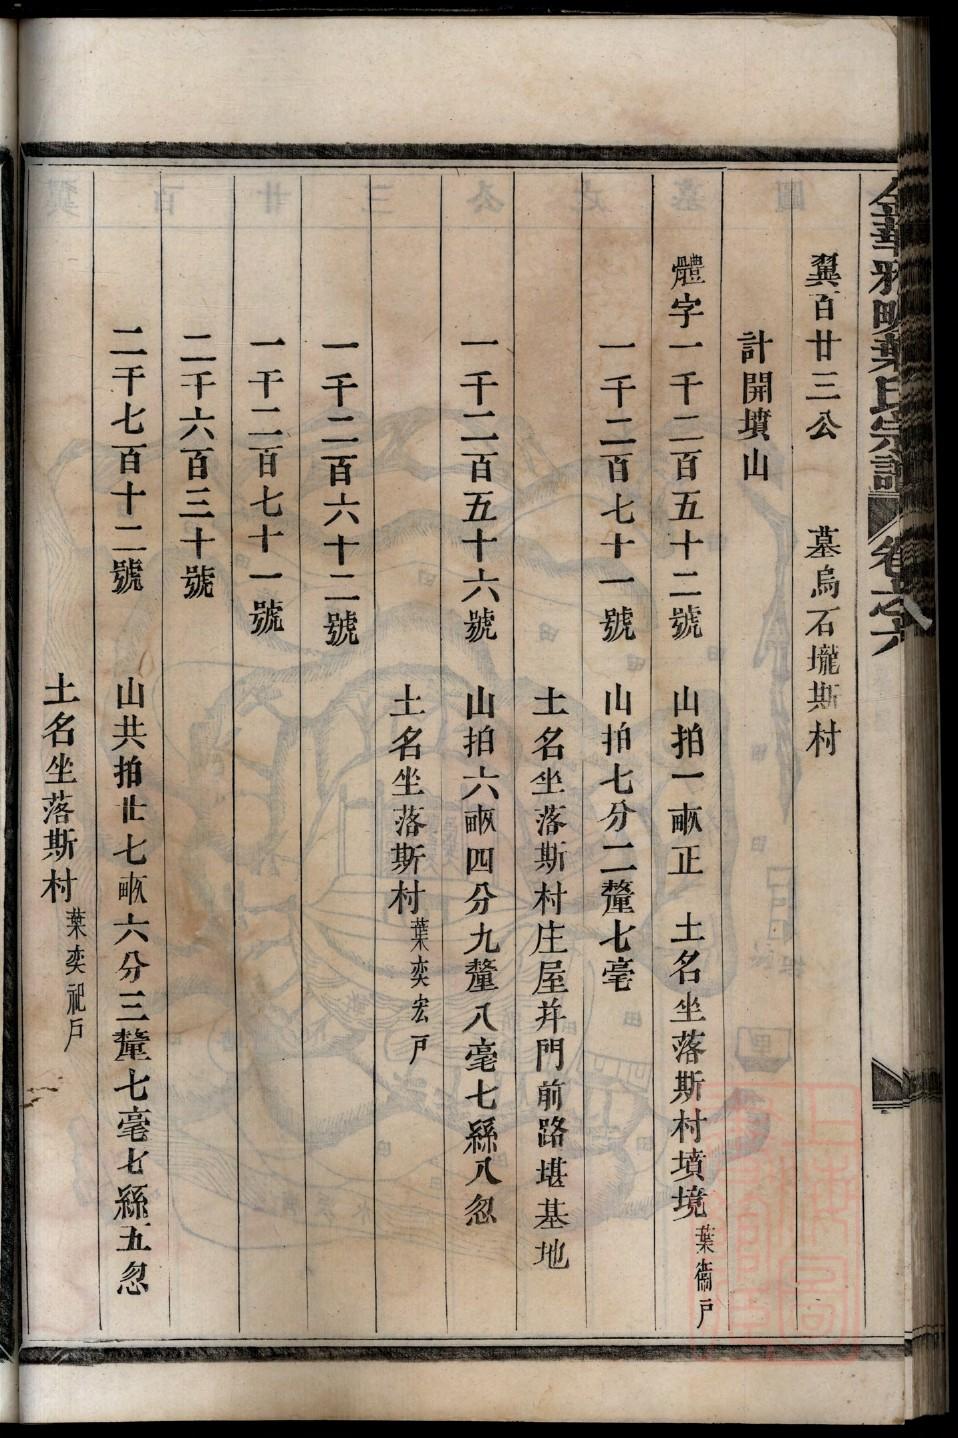 翼百廿三公　墓烏石壠斯村
計開墳山
體字一千二百五十二號　山拍一畝正　土名坐落斯村墳境 葉衞戶
一千二百七十一號　山拍七分二釐七毫
土名坐落斯村庄屋并門前路堪基地
一千二百五十六號　山拍六畝四分九釐八毫七絲八忽
土名坐落斯村 葉奕宏戶
一千二百六十二號
一千二百七十一號
二千六百三十號
二千七百十二號　山共拍廿七畝六分三釐七毫七絲五忽
土名坐落斯村 葉奕祀戶